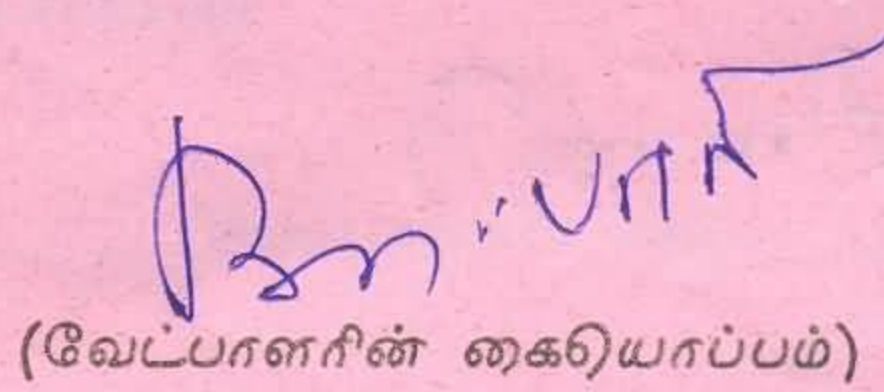 பாரி
(வேட்பாளரின் கையொப்பம்)